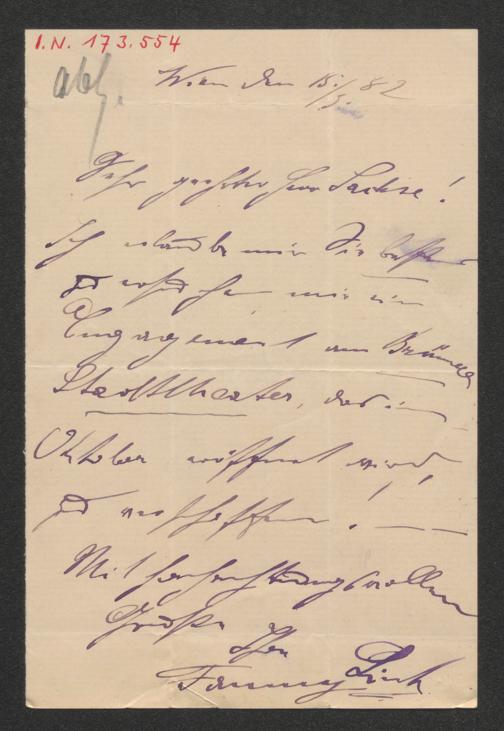 I.N. 173.554
abg.
Wien den 15./5. 82
Sehr geehrter Herr Sachse!
Ich erlaube mir Sie bestens
zu ersuchen mir ein
Engagement am Brünner
Stadttheater, das im
Oktober eröffnet wird,
zu verschaffen! —
Mit hochachtungsvollem
Gruße
Ihre
Fanny Link